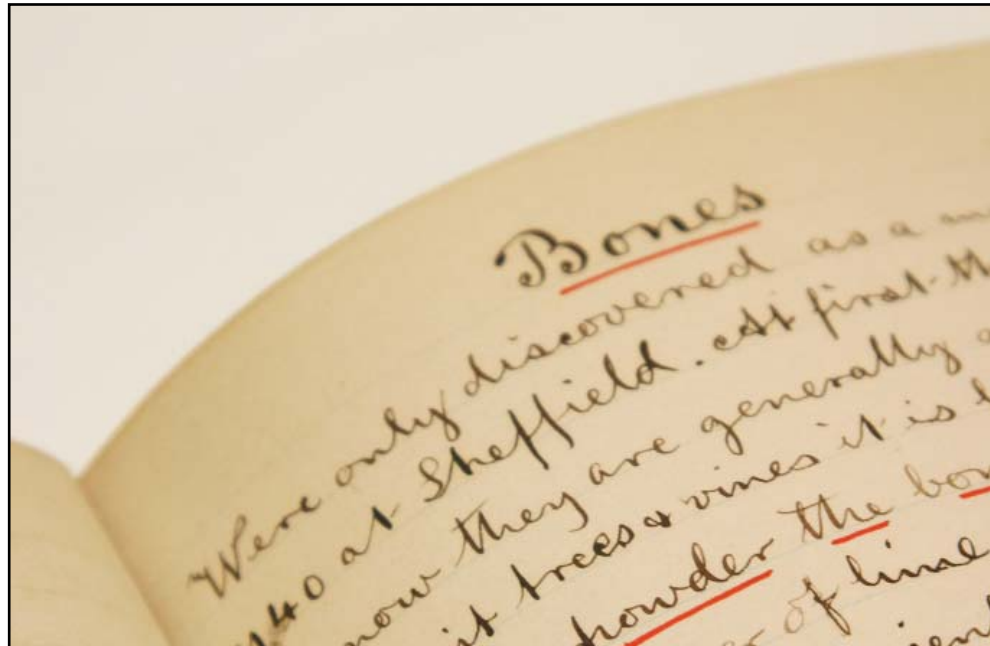 Bones
Were only discovered as a
40 at Sheffield. At first
now they are generally
it trees & vines it is
powder the
of